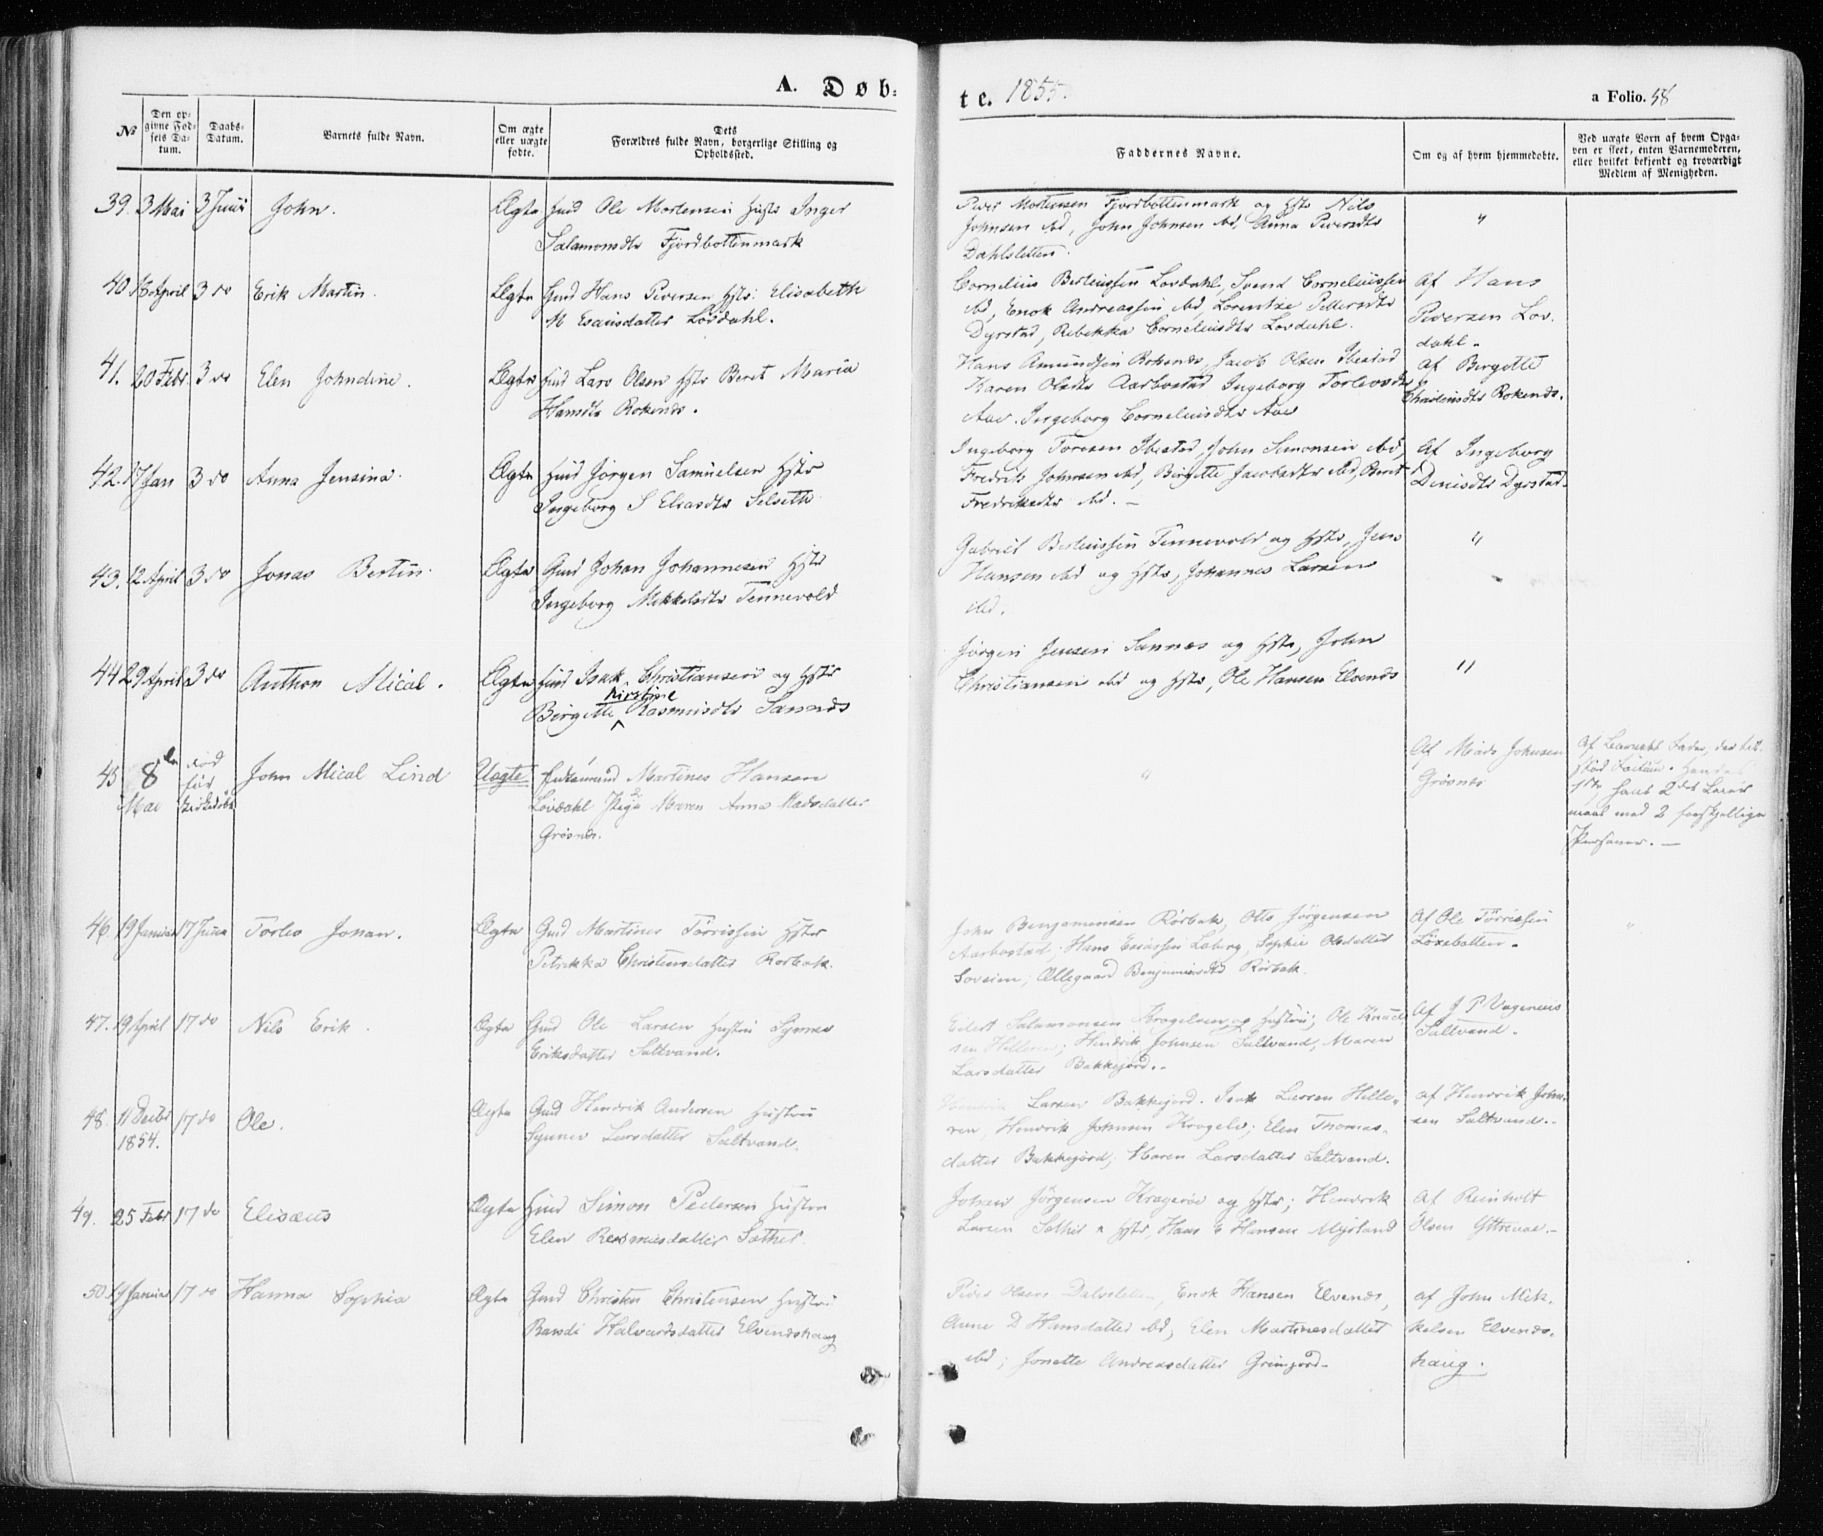 A. Døb-
te. 1855.
a Folio. 58
№
Den op-
givne Fød-
sels Da-
tum.
Daabs-
Datum.
Barnets fulde Navn.
Om ægte
eller uægte
fødte.
Dets
Forældres fulde Navn, borgerlige Stilling og
Opholdssted.
Faddernes Navne.
Om og af hvem hjemmedøbte.
Ved uægte Børn af hvem Opga-
ven er skeet, enten Barnemoderen,
eller hvilket bekjendt og troværdigt
Medlem af Menigheden.
39. 3 Mai 3 Juni John. Ægte Ole Mortensen Hstr Inger
Salamonsdtr Fjordbottenmark
Peder Mortensen Fjordbottenmark og Hstr Nils
Johnsen ibd, John Johnsen ibd, Anna Pedersdtr
Dahlsletten.
"
40. April 3 do Erik Martin. Ægte Gmd Hans Pedersen Hstr. Elisabeth
M Esaisdatter Løvdahl.
Cornelius Berteussen Lovdahl, Svend Corneliussen
ibd, Enok Andreassen ibd, Lorentze Pettersdtr
Dyrstad, Rebekka Corneliusdtr Lovdahl.
Af Hans
Pedersen Lov-
dahl.
41. 20 Febr. 3 do Elen Johndine. Ægte Lars Olsen Hstr Beret Maria
Hansdtr Rokenes.
Hans Amundsen Rokenes, Jacob Olsen Ibestad
Karen Olsdtr Aarbostad Ingeborg
Ingeborg Corneliusdtr
af Bergitte
Rokenes.
42. 17 Jan 3 do Anna Jensina. Ægte Jørgen Samuelsen Hstr
Ingeborg S Eliasdtr Selseth
Ingeborg Toresen Ibestad, John Simonsen ibd,
Fredrik Johnsen ibd, Birgitte Jacobsdtr ibd, Beret
Fredriksdtr ibd. —
Af Ingeborg
Denisdtr Dyrstad.
43. 12 April 3 do Jonas Bertin. Ægte Gmd Johan Johannesen Hstr
Ingeborg Mikkelsdtr Tennevold
Gabriel Berteussen Tennevold og Hstr, Jens
Hansen ibd og Hstr, Johannes Larsen
ibd.
"
44 29 April 3 do Anthon Mical. Ægte Isak Christiansen og Hstr
Kirstine
Birgitte Rasmusdtr Sannes
Jørgen Jensen Sannes og Hstr, John
Christiansen ibd og Hstr, Ole Hansen Elvenes
"
45 8 død
Mai før
John Mical Lind Uægte Martines Hansen
Lovdahl Pige Maren Anna Madsdatter
Grøsnes.
"
Af Mads Johnsen
Grøsnes
Af Barnets Fader, der til-
stod Factum.
maal med 2 forskjellige
Personer. —
46. 19 Januar 17 Juni Torleo Johan. Ægte Gmd Martines Tørrissen Hstr
Petrikka Christensdatter Rørbak.
John Benjaminsen Rørbak, Otto Jørgensen
Aarbostad; Hans Esaissen Loberg, Sophie Olsdatter
Soveien; Allegaard Benjaminsdtr Rørbak.
Af Ole Tørrissen
Løxebotten.
"
47. 19 April 17 do Nils Erik. Ægte Gmd Ole Larsen Hustru Synnev
Eriksdatter Saltvand.
Eilert Salamonsen Krogelven og Hustru; Ole Knud-
sen Hilleren; Hendrik Johnsen Saltvand, Maren
Larsdatter Bakkejord.
Af J P
Saltvand.
48. 11 Decbr 17 do Ole. Ægte Gmd Hendrik Andersen Hustru
1854.
Synnev Larsdatter Saltvand.
Larsen Bakkejord. Isak Larsen Hille-
ren, Hendrik Johnsen Krogelv; Elen Thomas-
datter Bakkejord; Maren Larsdatter Saltvand.
af Henrik John-
sen Saltvand.
49. 25 Febr 17 do Elisæus Ægte Simon Pedersen Hustru
Elen Rasmusdatter Sæther.
Johan Jørgensen Kragerøe og Hstr; Hendrik
Larsen Sæther & Hstr, Hans E Hansen Myrland
af Reinholt
Olsen Yttreaae.
50. 19 Januar 17 do Hanna Sophia Ægte Gmd Christen Christensen Hustru
Randi Halvardsdatter Elveneshaug
Peder Olsen Dalsletten, Enok Hansen Elvenes,
Anne D Hansdatter ibd; Elen Martinesdatter
ibd; Jonette Andreasdatter Grimjord
af John Mik-
kelsen Elvenes-
haug.